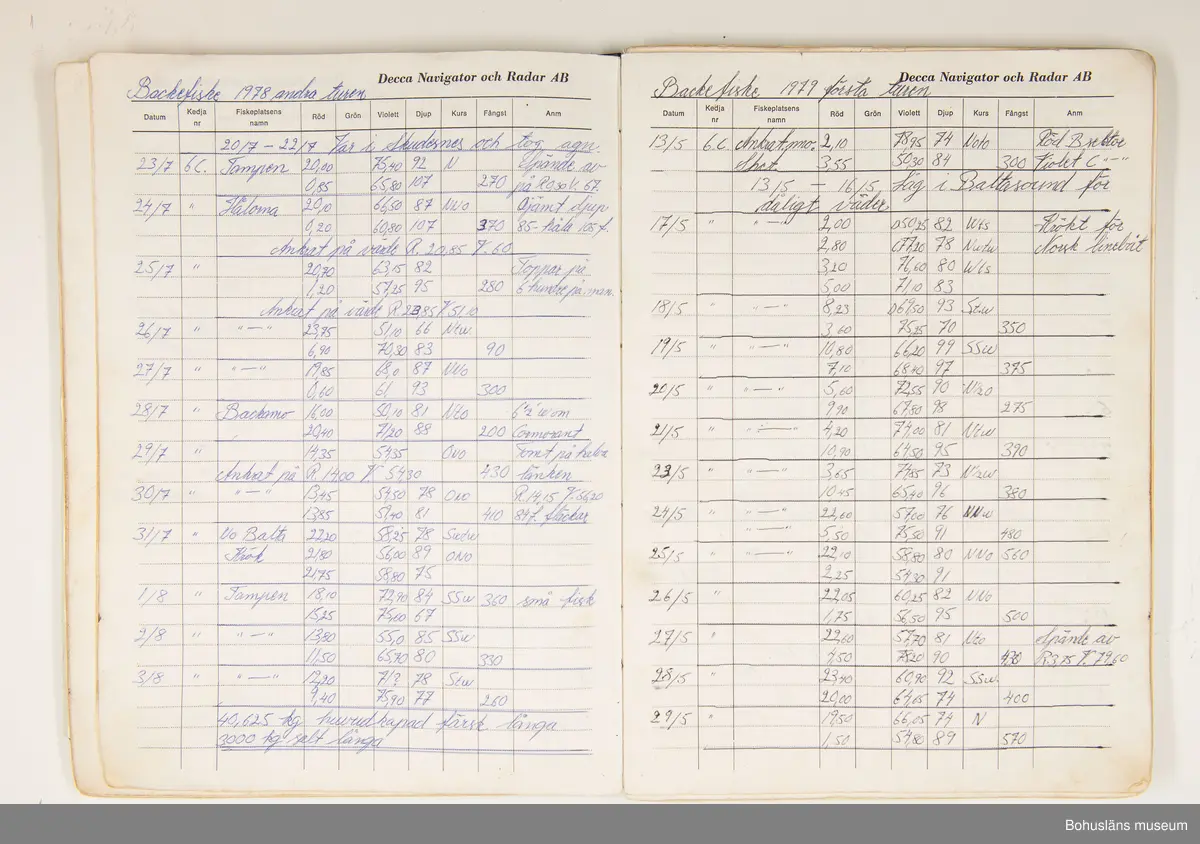 Decca Navigator och Radar AB
Backefiske 1978 andra turen
Datum Kedja nr Fiskeplatsens namn Röd Grön Violett Djup Kurs Fångst Anm
20/7 – 22/7 Var i Skudesnes och tog agne.
23/7 6C. Tampen 20,00 75,40 92 N Spände av
0,85 65,80 107 270 på Rosa V. 67.
24/7 " Hålorna 20,10 66,50 87 NVo Ojämt djup
0,20 60,80 107 370 85- håla 105 f.
Ankrat på värde R. 20,85 V. 60
25/7 " 20,70 63,15 82 Toppar på
1,20 57,25 95 280 6 hundre på: man.
Ankrat på värde R 23,85 V 51,10
26/7 " "—" 23,75 51,10 66 Ntw
6,90 70,30 83 90
27/7 " "—" 19,85 68,0 87 NNo
0,60 61 93 300
28/7 " Backmo 16,00 50,10 81 Nto 6'2' w om
20,40 71,20 88 200 Cormorant
29/7 " 14,35 54,35 Ovo Tomt på halva
Ankrat på R 14,00 V 54,30 430 länken
30/7 " "—" 13,45 54,50 78 Ono R. 14,15 V. 56,20
13,85 59,40 81 410 84 f. fläckar
31/7 " Vo Balta 22,20 58,25 78
Krok 21,80 56,00 89 ONo
21,75 58,80 75
1/8 " Tampen 18,10 72,90 84 SSw 360 små fisk
15,25 75,60 67
2/8 " "—" 13,80 55,0 85 SSw
11,50 65,70 80 330
3/8 " "—" 12,20 71,2 78 Stw
9,40 75,90 77 260
40,625 kg huvudkapad färsk långa
3000 kg salt långa
Decca Navigator och Radar AB
Backefiske 1979 första turen
Datum Kedja nr Fiskeplatsens namn Röd Grön Violett Djup Kurs Fångst Anm
13/5 6.C Ankrat, mo. 2,10 78,95 74 Noto Röd B sektor
3,55 50,30 84 300 Violet C "—"
13/5 – 16/5. Låg i Baltasound för
dåligt väder
17/5 " "—" 2,00 D50,25 82 Wts Krökt för
2,80 C77,20 78 Norsk linebåt
3,20 76,60 80 Wts
5,00 71,10 83
18/5 " "—" 8,23 D69,50 93 Stw
3,60 75,25 70 350
19/5 " "—" 10,80 66,20 99 SSw
7,10 68,40 97 375
20/5 " "—" 5,60 72,55 90
9,90 67,80 98 275
21/5 " "—" 4,20 74,00 81 Ntw
10,90 64,50 95 390
23/5 " "—" 3,65 74,85 73
10,45 65,40 96 380
24/5 " "—" 22,60 57,00 76 NNw
"—" 5,50 75,50 91 480
25/5 " "—" 22,10 58,80 80 NNo 560
2,25 54,30 91
26/5 " 22,05 60,25 82 NNo
1,75 56,50 95 500
27/5 " 22,60 57,70 81 Nto Spände av
4,50 75,20 90 430 R3,75 V. 79,60
28/5 " 23,40 60,90 92 SSw
20,00 64,05 74 400
29/5 " 19,50 66,05 74 N
1,50 54,80 89 570
Bohusläns museum